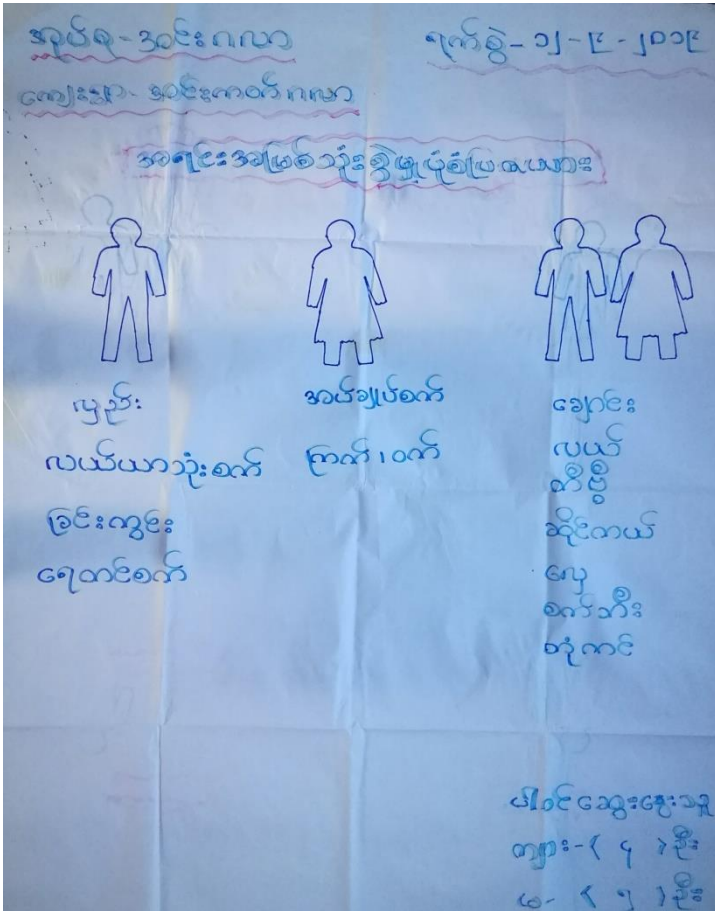 အုပ်စု - အင်းဂလာ
ရက်စွဲ - ၁၂ - ၆ - ၂၀၁၉
ကျေးရွာ - အင်းကဝက်ဂလာ
အရင်းအမြစ်သုံးစွဲမှုပုံစံပြဇယား
လှည်း
လယ်ယာသုံးစက်
ခြင်းကွင်း
ရေတင်စက်
အပ်ချုပ်စက်
ကြက်၊ ဝက်
ချောင်း
လယ်
တီဗွီ
ဆိုင်ကယ်
လှေ
စက်ဘီး
တုံကင်
ပါဝင်ဆွေးနွေးသူ
ကျား - ( ၄ ) ဦး
မ - ( ၅ ) ဦး